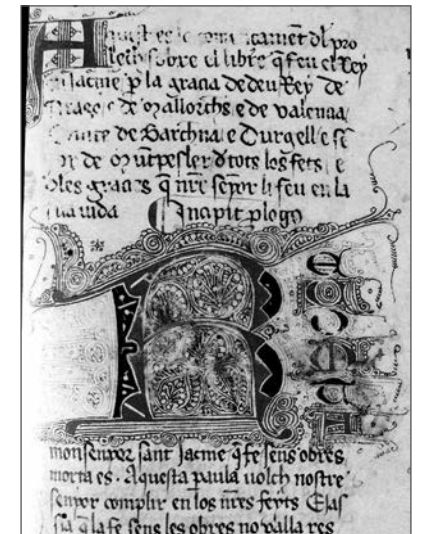 Aquest es lo començament dl pro
lech sobre el libre q̃ feu el Rey
en Jacme p̲ la gracia de deu Rey de
Arago e de Mallorchs e de valencia
Comte de Barchna e Durgell e se
nyor de Mũtpesler d̃ tots los fets e
d̃les gracies q̃ nr̃e senyor li feu en la
sua vida Incipit p̲logus
Recomta
monsenyor sant Jacme q̃ fe sens obres
morta es. Aquesta paula volch nostre
senyor complir en los nr̃es feyts E ja s
sia q̃ la fe sens les obres no valla res